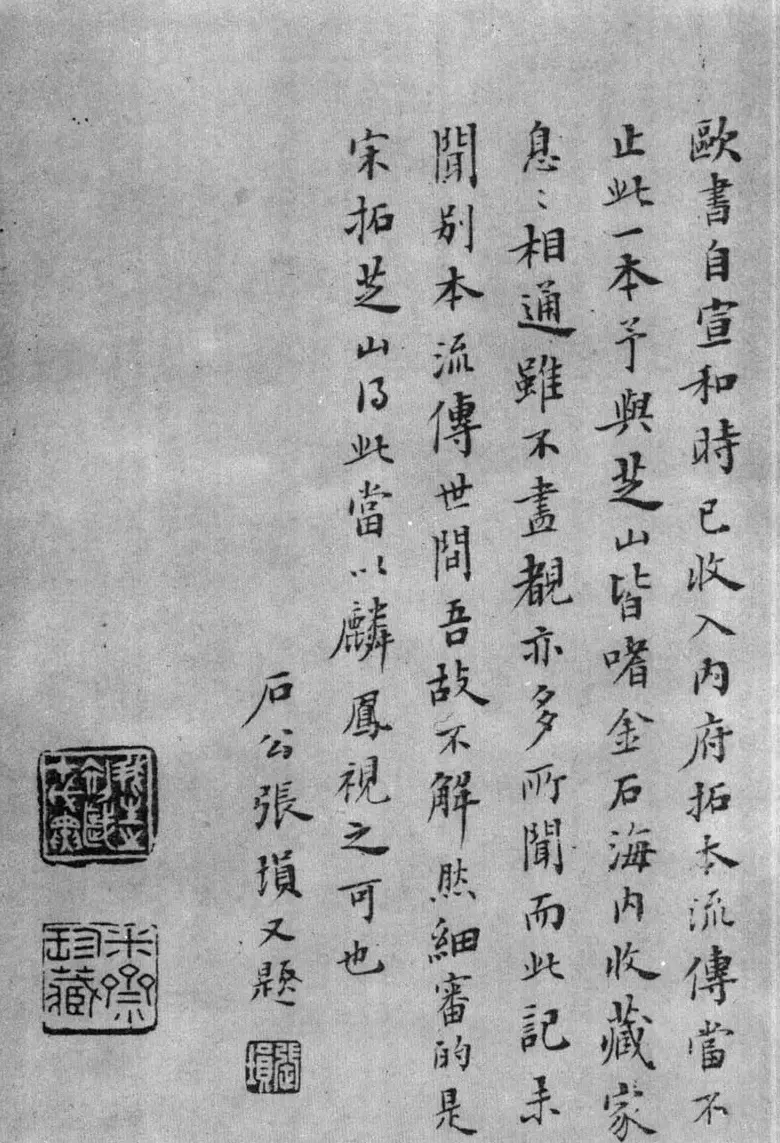 歐書自宣和時已收入內府拓本流傳當不
止此一本予與芝山皆嗜金石海內收藏家
息〻相通雖不盡覩亦多所聞而此記未
聞別本流傳世間吾故不解然細審的是
宋拓芝山得此當以麟鳳視之可也
石公張塤又題
張塤
珍藏